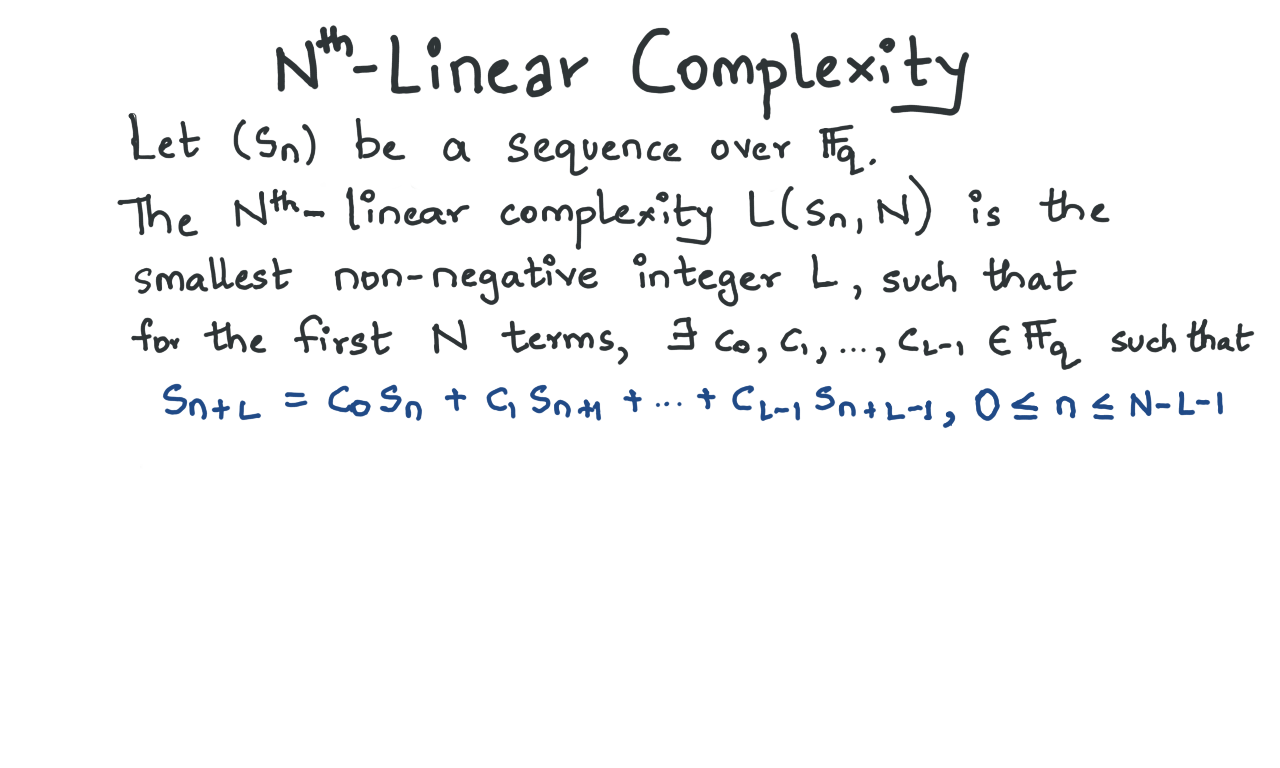 Nᵗʰ-Linear Complexity
Let (Sₙ) be a sequence over 𝔽_q.
The Nᵗʰ- linear complexity L(Sₙ, N) is the
smallest non-negative integer L, such that
for the first N terms, ∃ c₀, c₁, ..., c_{L-1} ∈ 𝔽_q such that
S_{n+L} = C₀Sₙ + C₁S_{n+1} + ... + C_{L-1}S_{n+L-1}, 0 ≤ n ≤ N-L-1